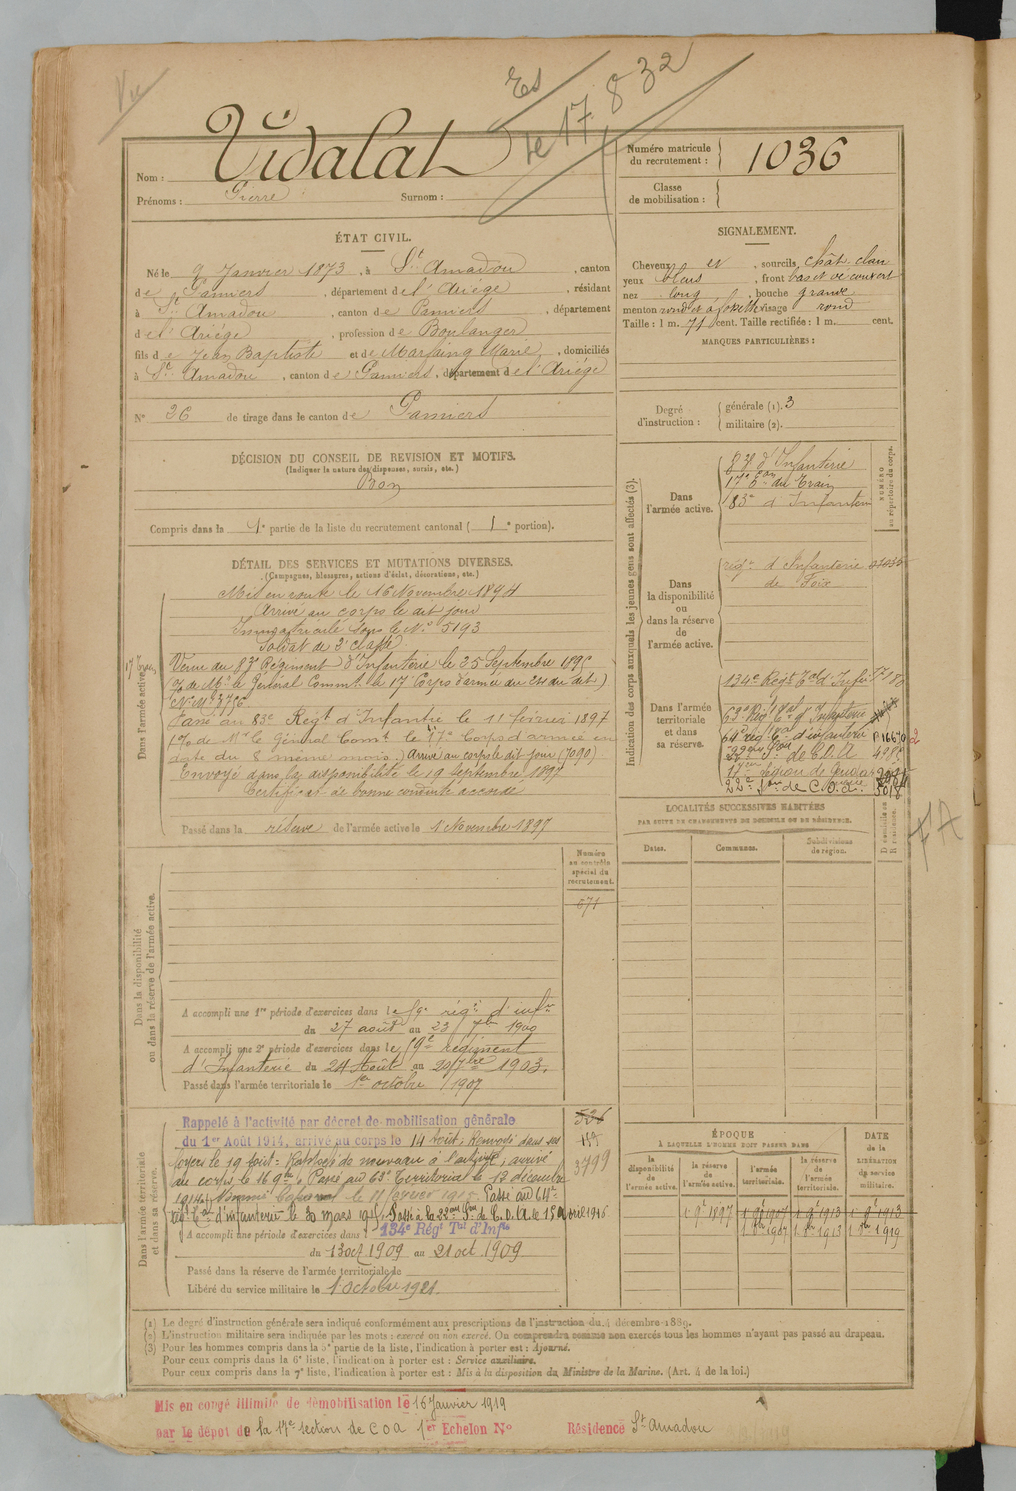 Vu
Es
le 17.832
Nom : Vidalat
Prénoms : Pierre Surnom :
Numéro matricule
du recrutement : 1036
Classe
de mobilisation :
ÉTAT CIVIL.
Né le 9 Janvier 1873, à St Amadou, canton
de Pamiers, département de l'Ariége, résidant
à St Amadou, canton de Pamiers, département
de l'Ariége, profession de Boulanger
fils de Jean Baptiste et de Marfaing Marie, domiciliés
à St Amadou, canton de Pamiers, département de l'Ariége
N° 26 de tirage dans le canton de Pamiers
SIGNALEMENT.
Cheveux et, sourcils chât. clair
yeux bleus, front bas et découvert
nez long, bouche grande
menton rond et à fossette visage rond
Taille : 1 m. 71 cent. Taille rectifiée : 1 m. cent.
MARQUES PARTICULIÈRES :
Degré
d'instruction :
générale (1). 3
militaire (2).
DÉCISION DU CONSEIL DE REVISION ET MOTIFS.
(Indiquer la nature des dispenses, sursis, etc.)
Bon
Compris dans la 1e partie de la liste du recrutement cantonal ( 1e portion).
DÉTAIL DES SERVICES ET MUTATIONS DIVERSES.
(Campagnes, blessures, actions d'éclat, décorations, etc.)
Dans l'armée active.
17e Train
Mis en route le 16 Novembre 1894
Arrivé au corps le dit jour
Immatriculé sous le N° 5193
Soldat de 2e classe
Venu du 83e Régiment d'Infanterie le 25 Septembre 1895
(D. de Mr le Général Commt le 17e Corps d'armée du 24 du dit)
N° Mle 3756
Passé au 83e Régt d'Infantrie le 11 février 1897
(D. de Mr le Général Comt le 17e Corps d'armée en
date du 8 même mois) Arrivé au corps le dit jour (7090)
Envoyé dans la disponibilité le 19 Septembre 1897
Certificat de bonne conduite accordé
Passé dans la réserve de l'armée active le 1 Novembre 1897
Indication des corps auxquels les jeunes gens sont affectés (3).
NUMÉRO
au répertoire du corps.
Dans
l'armée active.
83e d'Infanterie
17e Eon du Train
83e d'Infanterie
Dans
la disponibilité
ou
dans la réserve
de
l'armée active.
régt d'Infanterie
de Foix
Dans l'armée
territoriale
et dans
sa réserve.
134e Régt Tal d'Infie
63e Rég. Tal d'Infanterie
64e rég Tal d'infanterie
22e Son de C.O.A
17e Légion de Gend.
22e Son de C.O.A.
LOCALITÉS SUCCESSIVES HABITÉES
PAR SUITE DE CHANGEMENTS DE DOMICILE OU DE RÉSIDENCE.
Dates.
Communes.
Subdivisions
de région.
D domicile ou
R résidence.
FA
Dans la disponibilité
ou dans la réserve de l'armée active.
Numéro
au contrôle
spécial du
recrutement.
671
A accompli une 1re période d'exercices dans le 59e régt d'infie
du 27 août au 23 7bre 1900
A accompli une 2e période d'exercices dans le 59e régiment
d'Infanterie du 24 Août au 20 7bre 1903.
Passé dans l'armée territoriale le 1er octobre 1907
Dans l'armée territoriale
et dans sa réserve.
Rappelé à l'activité par décret de mobilisation générale
du 1er Août 1914, arrivé au corps le 14 août. Renvoyé dans ses
foyers le 19 août. Rappelé de nouveau à l'activité, arrivé
au corps le 16 9bre. Passé au 63e Territorial le 13 décembre
1914. Nommé Caporal le 11 février 1915. Passé au 64e
rég Tal d'infanterie le 30 mars 1915. Passé à la 22e Son de C.O.A. le 15 Avril 1916
A accompli une période d'exercices dans 134e Régt Tal d'Infie
du 13 oct 1909 au 21 oct 1909
Passé dans la réserve de l'armée territoriale le
Libéré du service militaire le 1 Octobre 1921.
536
117
3799
ÉPOQUE
À LAQUELLE L'HOMME DOIT PASSER DANS
DATE
de la
LIBÉRATION
du service
militaire.
la
disponibilité
de l'armée active.
la réserve
de
l'armée active.
l'armée
territoriale.
la réserve
de
l'armée
territoriale.
1 9e 1897 1 9e 1907 1 9e 1913 1 9e 1913
1 8bre 1907 1 8bre 1913 1 8bre 1919
(1) Le degré d'instruction générale sera indiqué conformément aux prescriptions de l'instruction du 4 décembre 1889.
(2) L'instruction militaire sera indiquée par les mots : exercé ou non exercé. On comprendra comme non exercés tous les hommes n'ayant pas passé au drapeau.
(3) Pour les hommes compris dans la 5e partie de la liste, l'indication à porter est : Ajourné.
Pour ceux compris dans la 6e liste, l'indication à porter est : Service auxiliaire.
Pour ceux compris dans la 7e liste, l'indication à porter est : Mis à la disposition du Ministre de la Marine. (Art. 4 de la loi.)
Mis en congé illimité de démobilisation le 16 Janvier 1919
par le dépot de la 17e section de COA 1er Echelon N° Résidence St Amadou